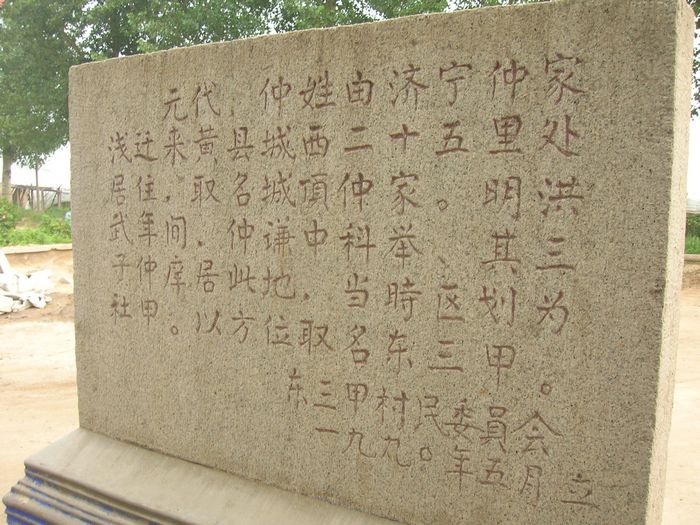 元代,仲姓由济宁仲家
浅迁来黄县城西二十五里处
居住,取名城頂仲家。明洪
武年间,仲谦中科举、其三
子仲库居此地,当時区划为
社甲。以方位取名东三甲。
东三甲村民委员会
一九九〇年五月立